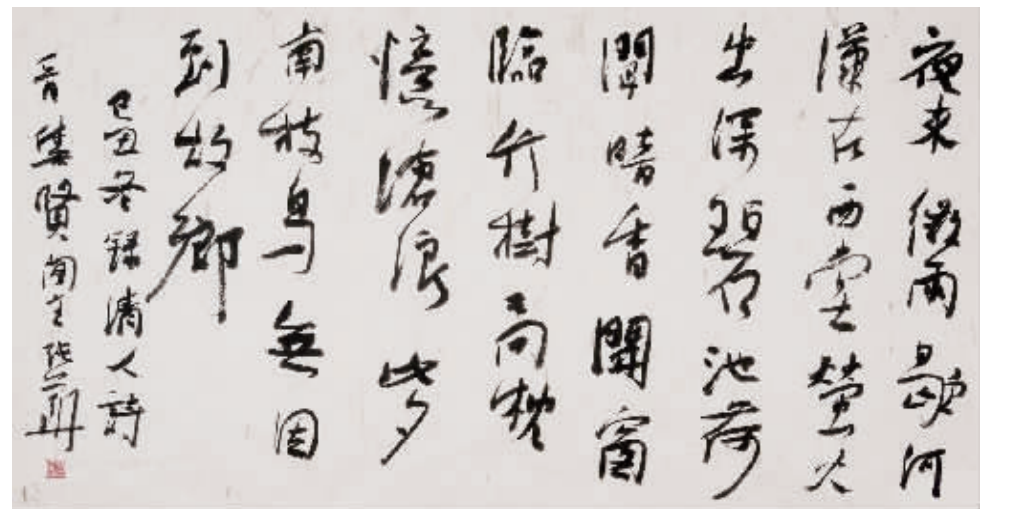 夜來微雨歇河
漢在西堂螢火
出深碧池荷
聞暗香開窗
臨竹樹高枕
憶滄浪此夕
南枝鳥無因
到故鄉
己丑冬録清人詩
賢閣主張